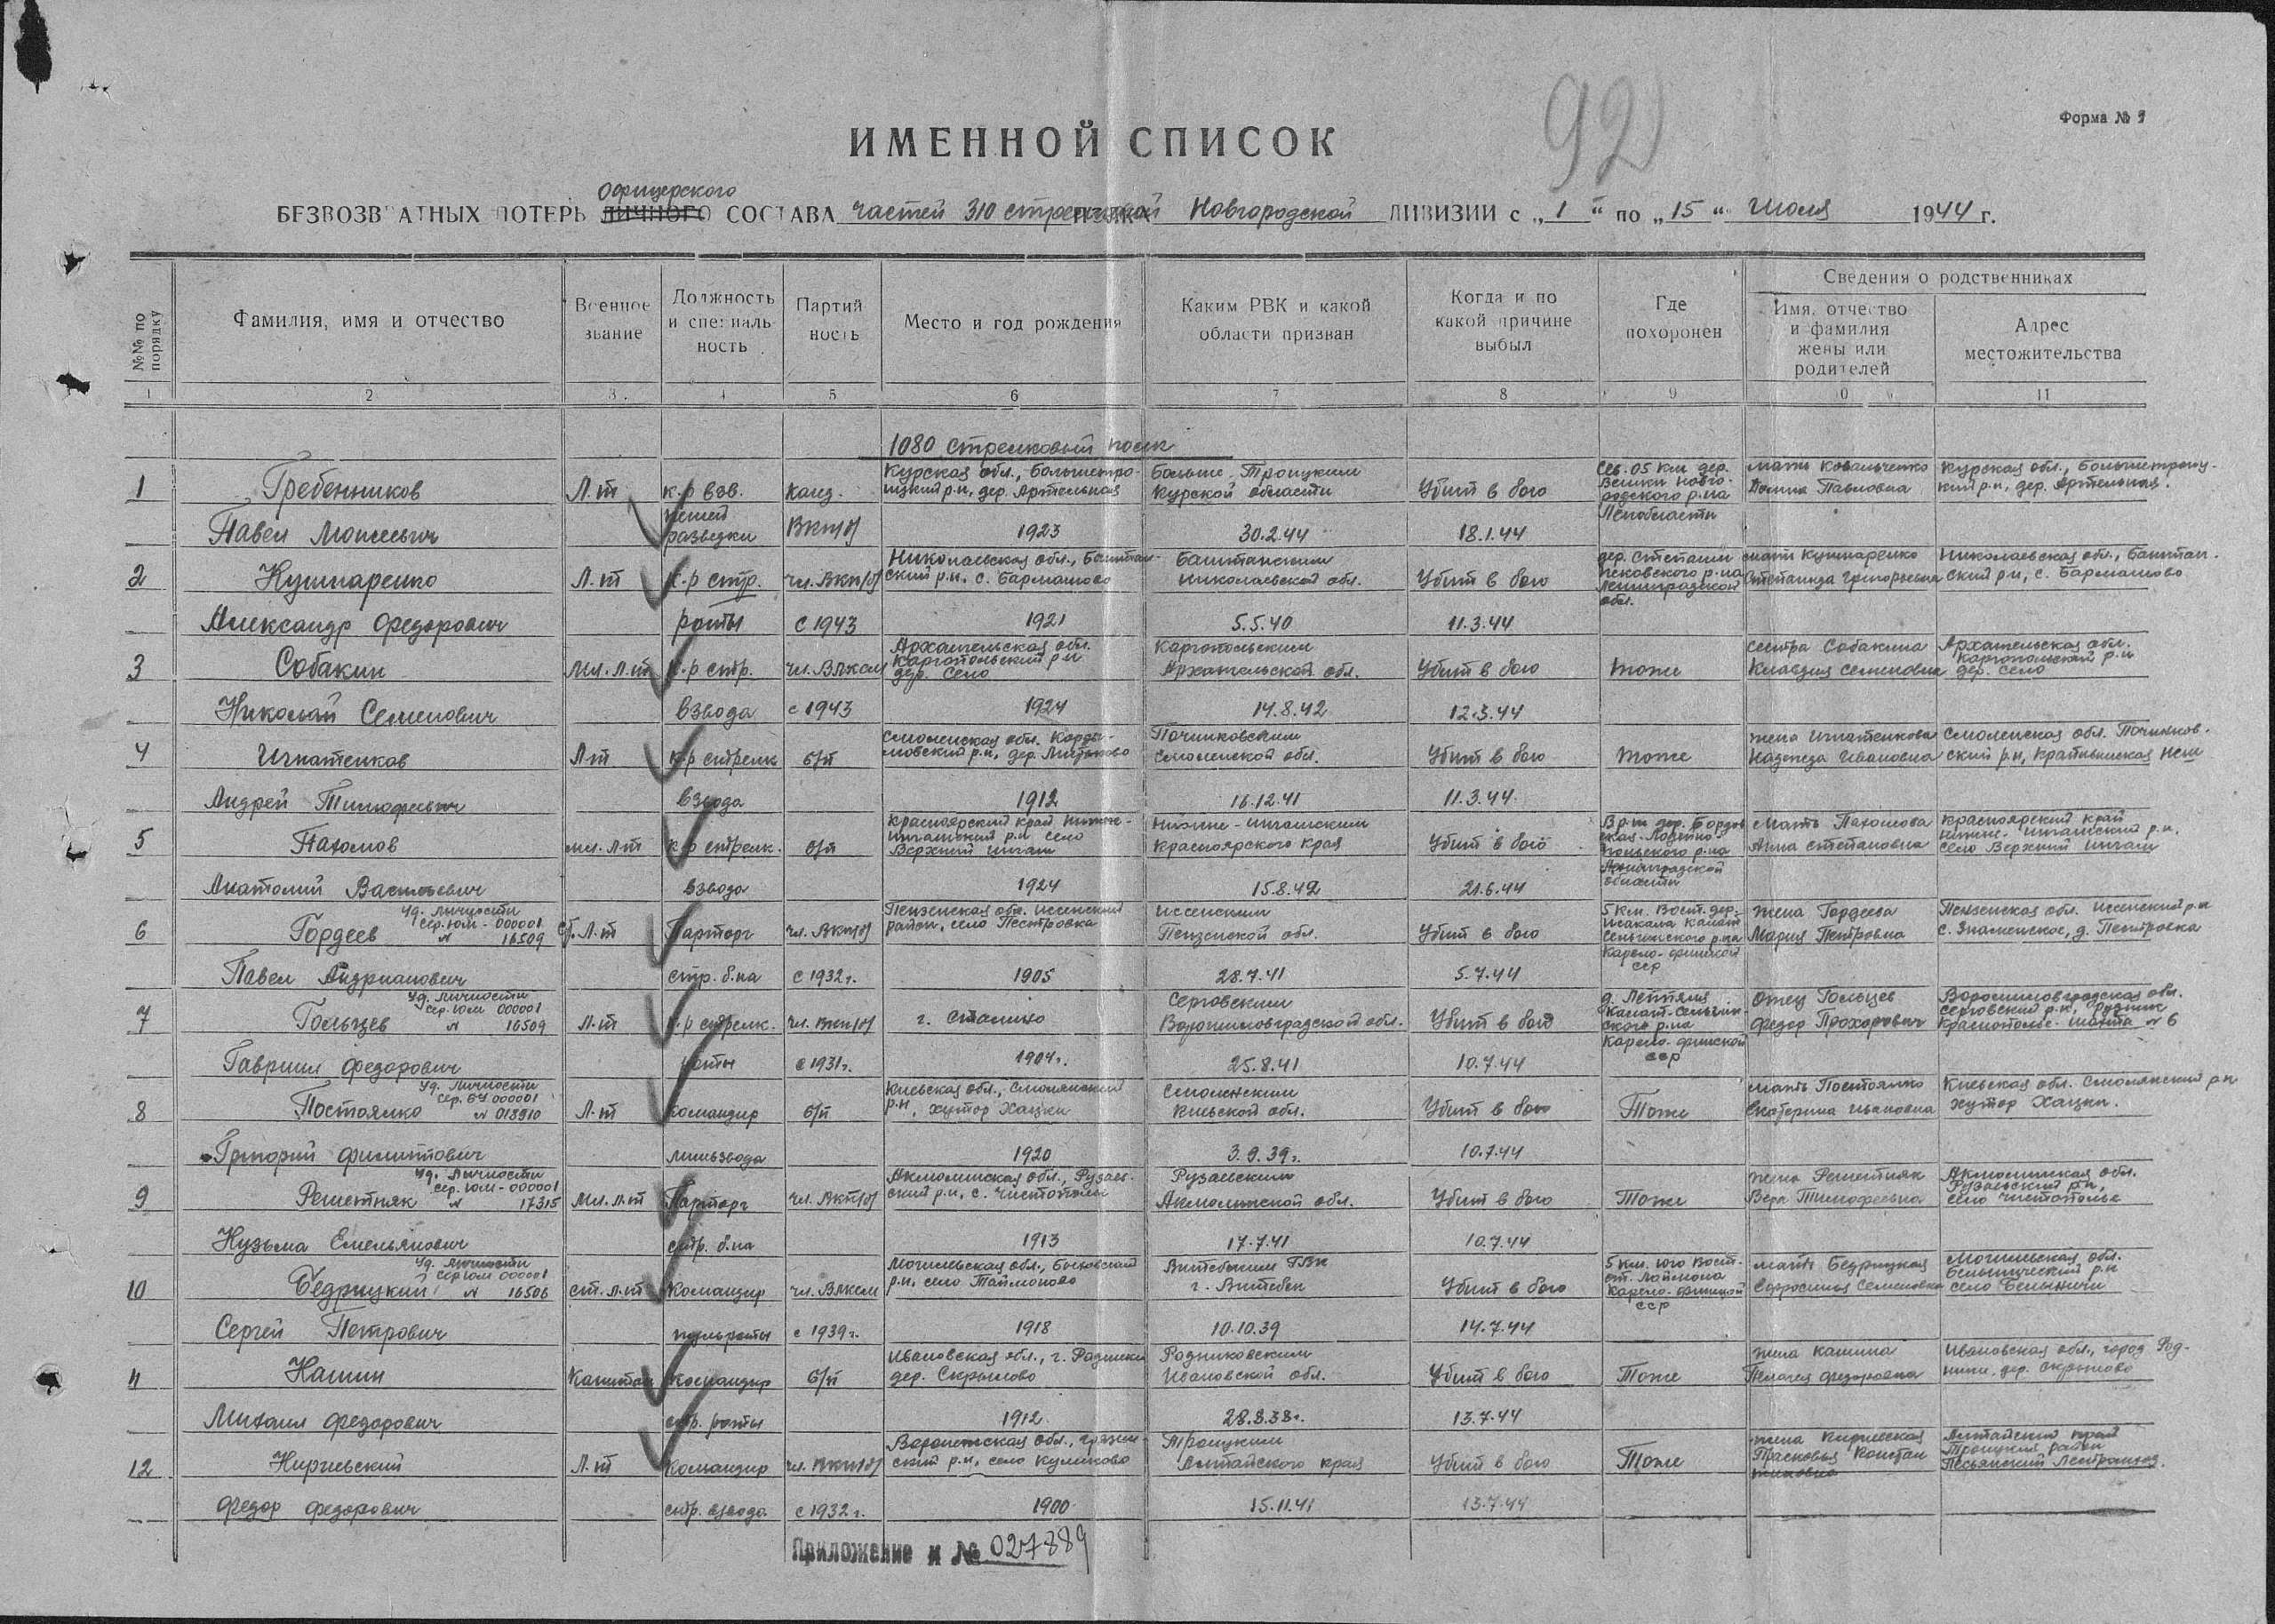 92
Форма № 1
ИМЕННОЙ СПИСОК
офицерского
БЕЗВОЗВРАТНЫХ ПОТЕРЬ ЛИЧНОГО СОСТАВА частей 310 стрелковой Новгородской ДИВИЗИИ с „1" по „15" Июля 1944 г.
№№ по порядку
Фамилия, имя и отчество
Военное звание
Должность и специальность
Партийность
Место и год рождения
Каким РВК и какой области призван
Когда и по какой причине выбыл
Где похоронен
Сведения о родственниках
Имя, отчество и фамилия жены или родителей
Адрес местожительства
1 2 3 4 5 6 7 8 9 10 11
1080 стрелковый полк
1 Гребенников Л-т к-р взв. канд. Курская обл., Больше-троицкий р-н, дер. Артельная Больше-Троицким Курской области Убит в бою Сев. 05 км дер. Новгородского р-на Ленобласти мать Ковальченко Павловна Курская обл., Большетроицкий р-н, дер. Артельная.
Павел Моисеевич пешей разведки ВКП/б/ 1923 30.2.44 18.1.44
2 Кушнаренко Л-т к-р стр. чл. ВКП/б/ Николаевская обл., Баштанский р-н, с. Бармашово Баштанским Николаевской обл. Убит в бою дер. Степаши Псковского р-на Ленинградской обл. мать Кушнаренко Степанида Григорьевна Николаевская обл., Баштанский р-н, с. Бармашово
Александр Федорович роты с 1943 1921 5.5.40 11.3.44
3 Собакин мл. л-т к-р стр. чл. ВЛКСМ Архангельская обл. Каргопольский р-н дер. Село Каргопольским Архангельской обл. Убит в бою тоже сестра Собакина Клавдия Семеновна Архангельская обл. Каргопольский р-н дер. Село
Николай Семенович взвода с 1943 1924 14.8.42 12.3.44
4 Игнатенков Л-т к-р стрелк б/п Смоленская обл. Кардымовский р-н, дер. Починковским Смоленской обл. Убит в бою тоже жена Игнатенкова Надежда Ивановна Смоленская обл. Починковский р-н,
Андрей Тимофеевич взвода 1912 16.12.41 11.3.44
5 Пахомов мл. л-т к-р стрелк. б/п Красноярский край, Нижне-Ингашский р-н село Верхний Ингаш Нижне-Ингашским Красноярского края Убит в бою В р-не дер. Лодейнопольского р-на Ленинградской области Мать Пахомова Анна Степановна Красноярский край Нижне-Ингашский р-н, село Верхний Ингаш
Анатолий Васильевич взвода 1924 15.8.42 21.6.44
6 Гордеев уд. личности сер. ЮМ - 000001 № 16509 ст. Л-т Парторг чл. ВКП/б/ Пензенская обл. Иссинский район, село Пестровка Иссенским Пензенской обл. Убит в бою 5 км. Вост. дер. р-на Карело-финской сср жена Гордеева Мария Петровна Пензенская обл. Иссенский р-н с. Знаменское, д. Пестровка
Павел Андрианович стр. б-на с 1932 г. 1905 28.7.41 5.7.44
7 Гольцев уд. личности сер. ЮМ 000001 № 16509 Л-т к-р стрелк. чл. ВКП/б/ г. Сталино Серговским Ворошиловградской обл. Убит в бою р-на Карело-финской сср Отец Гольцев Федор Прохорович Ворошиловградская обл. Серговский р-н, рудник шахта № 6
Гавриил Федорович роты с 1931 г. 1904 г. 25.8.41 10.7.44
8 Постоянко уд. личности сер. БЧ 000001 № 018910 Л-т командир б/п Киевская обл., Смелянский р-н, хутор Хацки Смелянским Киевской обл. Убит в бою Тоже мать Постоянко Екатерина Ивановна Киевская обл. Смелянский р-н хутор Хацки.
Григорий Филиппович минвзвода 1920 3.9.39 г. 10.7.44
9 Решетняк уд. личности сер. ЮМ - 000001 № 17315 Мл. л-т Парторг чл. ВКП/б/ Акмолинская обл., Рузаевский р-н, с. Чистополье Рузаевским Акмолинской обл. Убит в бою Тоже жена Решетняк Вера Тимофеевна Акмолинская обл. Рузаевский р-н, село Чистополье
Кузьма Емельянович стр. б-на 1913 17.7.41 10.7.44
10 Бедрицкий уд. личности сер ЮМ 000001 № 16506 ст. л-т Командир чл. ВЛКСМ Могилевская обл., Быховский р-н, село Таймоново Витебским ГВК г. Витебск Убит в бою 5 км. юго вост. ст. Лоймола Карело-финской сср мать Бедрицкая Ефросинья Семеновна Могилевская обл. Белыничский р-н село Белыничи
Сергей Петрович пульроты с 1939 г. 1918 10.10.39 14.7.44
11 Кашин Капитан командир б/п Ивановская обл., г. Родники дер. Скрылово Родниковским Ивановской обл. Убит в бою Тоже жена Кашина Пелагея Федоровна Ивановская обл., город Родники, дер. Скрылово
Михаил Федорович стр. роты 1912 28.8.38 г. 13.7.44
12 Киреевский Л-т командир чл. ВКП/б/ Воронежская обл., Грязинский р-н, село Куликово Троицким Алтайского края Убит в бою Тоже жена Киреевская Прасковья Константиновна Алтайский край Троицкий район
Федор Федорович стр. взвода с 1932 г. 1900 15.11.41 13.7.44
Приложение к № 027889